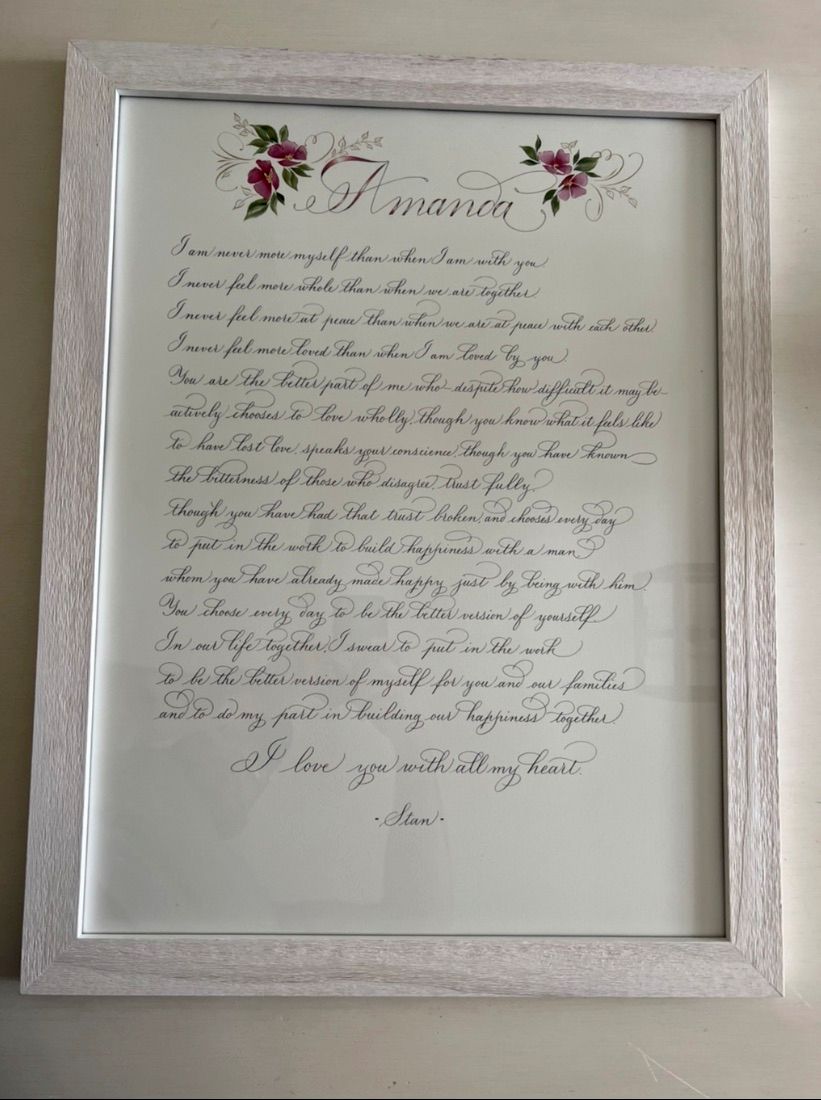 Amanda
I am never more myself than when I am with you.
I never feel more whole than when we are together.
I never feel more at peace than when we are at peace with each other.
I never feel more loved than when I am loved by you.
You are the better part of me who – despite how difficult it may be –
actively chooses to love wholly, though you know what it feels like
to have lost love, speaks your conscience, though you have known
the bitterness of those who disagree, trust fully,
though you have had that trust broken, and chooses every day
to put in the work to build happiness with a man
whom you have already made happy just by being with him.
You choose every day to be the better version of yourself.
In our life together, I swear to put in the work
to be the better version of myself for you and our families
and to do my part in building our happiness together.
I love you with all my heart.
· Stan ·